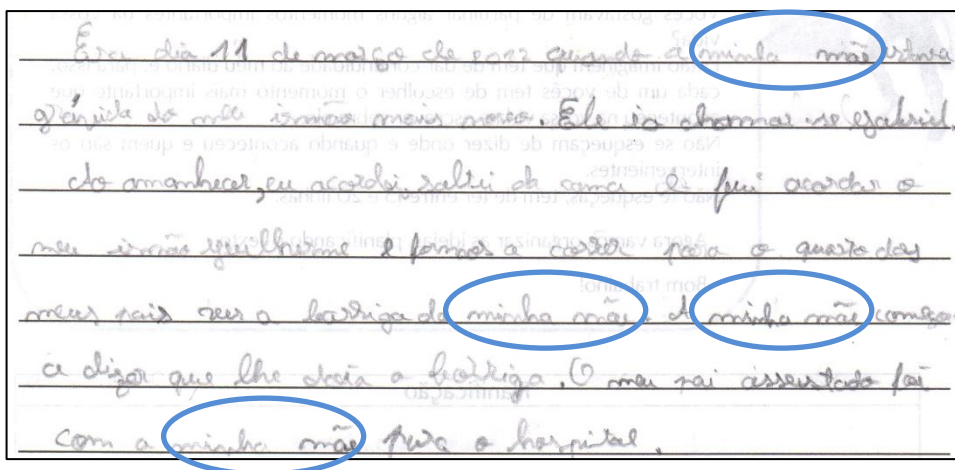 Era dia 11 de março de 2022 quando a minha mãe estava
grávida do meu irmão mais novo. Ele ia chamar-se gabriel.
Ao amanhecer, eu acordei, saltei da cama e fui acordar o
meu irmão guilherme e fomos a correr para o quarto dos
meus pais ver a barriga da minha mãe. A minha mãe começo
a dizer que lhe doía a barriga. O meu pai assustado foi
com a minha mãe para o hospital.